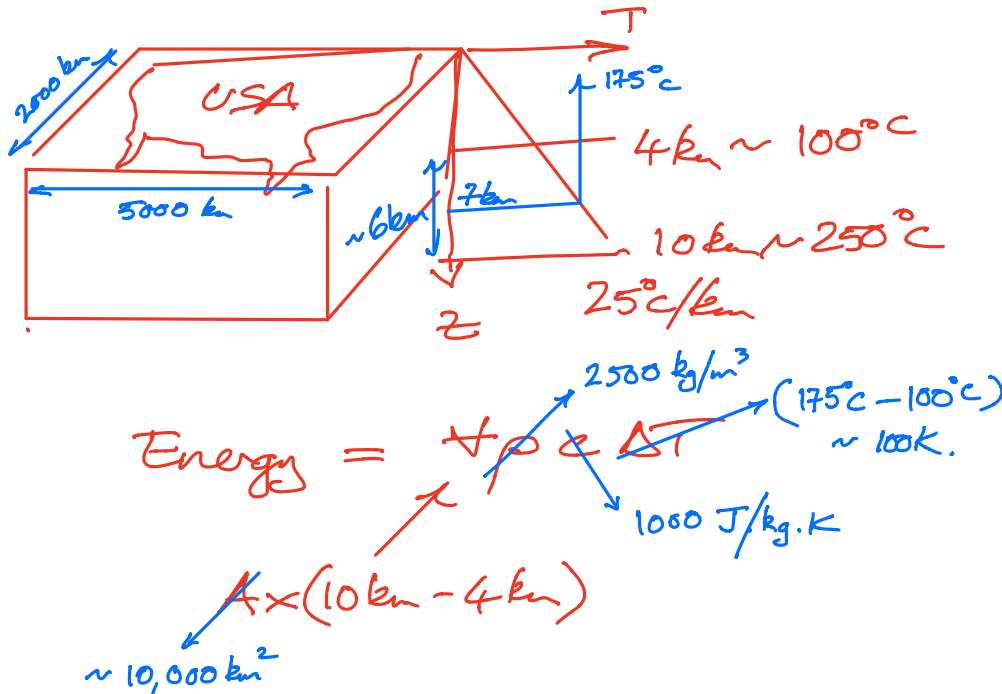 T
2000 km
USA
175°C
4km ~ 100°C
5000 km
~6km
7km
10km ~ 250°C
25°C/km
Z
2500 kg/m³
(175°C - 100°C)
~ 100K.
Energy = V ρ c ΔT
1000 J/kg.K
A x (10km - 4km)
~ 10,000 km²